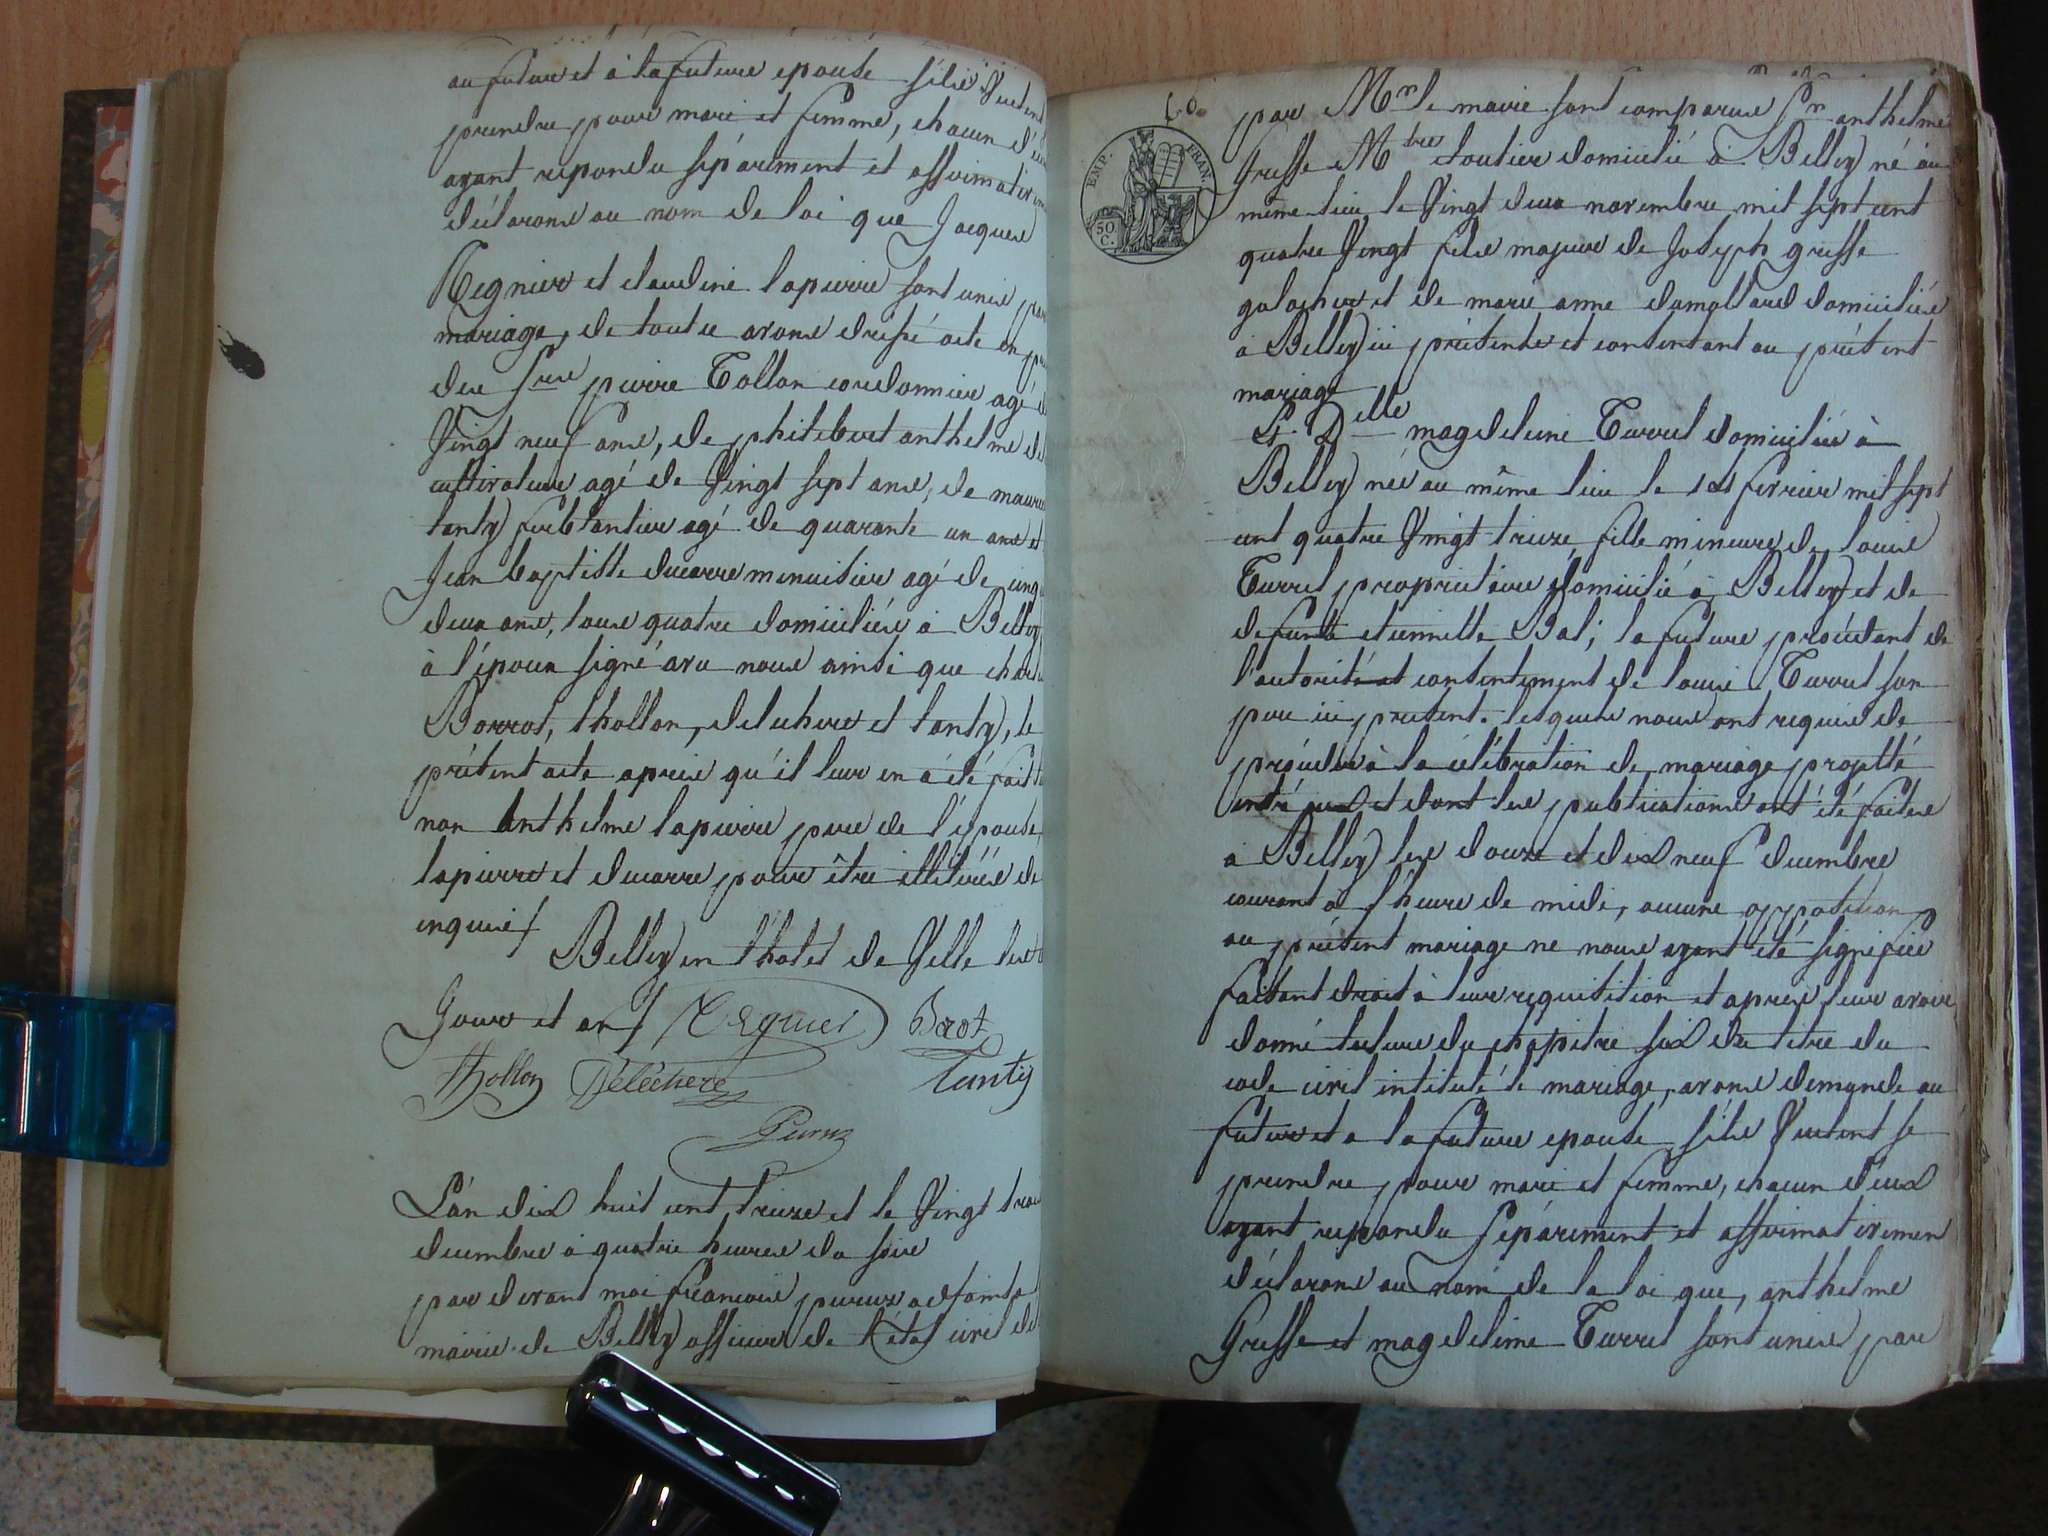 au futur et à la future epouse s'ils veulent
prendre pour mari et femme, chacun d'eux
ayant repondu séparément et affirmativem
déclarons au nom de loi que Jacques
Regnier et claudine lapierre sont unis par
mariage, de tout ce avons dressé acte en
des Srs pierre Tollon cordonnier agé de
Vingt neuf ans, de philibert anthelme de
cultivateur agé de Vingt sept ans, de
tanty agé de quarante un ans et
Jean baptiste ducarre menuisier agé de cinq
deux ans, tous quatre domiciliés à Belley
à l'époux signé avec nous ainsi que
Borrot, thollon, delechere et tanty, le
présent acte apres qu'il leur en a été fait
non anthelme lapierre pere de l'épouse
lapierre et ducarre pour être illitérés de
enquis/.
Belley en l'hotel de Ville les
Jour et an/. Regnier Borot
thollon Délechere Tanty
Peruz
L'an dix huit cent treize et le Vingt trois
decembre à quatre heures du soir
par devant moi francois peruz adjoint a
mairie de Belley officier de l'état civil de
60.
EMP. FRAN.
50 C.
par Mr le maire sont comparus Sr anthelme
Greffe Mtre domicilié à Belley né au
même lieu le Vingt deux novembre mil sept cent
quatre Vingt fils majeur de Joseph greffe
galocher et de marie anne damollard domiciliés
à Belley ici présents et consentant au présent
mariage
Et Delle magdeleine Turrel domiciliée à
Belley née au même lieu le six fevrier mil sept
cent quatre Vingt treize fille mineure de louis
Turrel proprietaire domicilié à Belley et de
defunte etiennette Bal; la future procédant de
l'autorité et consentement de louis Turrel son
pere ici present. lesquels nous ont requis de
procéder à la célébration de mariage projetté
entre eux et dont les publications ont été faites
à Belley les douze et dix neuf decembre
courant à l'heure de midi, aucune opposition
au présent mariage ne nous ayant été signifiée
faisant droit à leur requisition et apres leur avoir
donné lecture du chapitre six du titre du
code civil intitulé le mariage, avons demandé au
futur et a la future epouse s'ils Veulent se
prendre pour mari et femme, chacun d'eux
ayant repondu séparément et affirmativemen
déclarons au nom de la loi que, anthelme
Greffe et magdeleine Turrel sont unis par